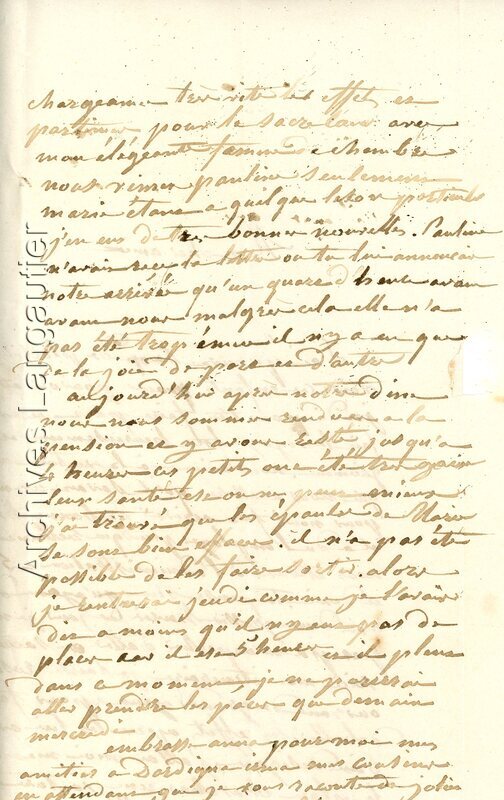 chargeame très vite les effets et
partimes pour le sacré cœur avec
mon élégante famme de chambre
nous vimes pauline seulement
marie étant a quelque leson
j'en eus de très bonnes nouvelles. Pauline
n'avais reçu la lettre ou tu lui annoncer
notre arrivée qu'un quare d'heure avan
avant nous malgrès cela elle n'a
pas été trop émue il n'y a eu que
de la joie de pare et d'autre
aujourd'hui après notre dine
nour nous sommes rendues a la
pension et y avons resté jusqu'a
heures ces petits ont été très gais
leur santé est on ne peux mieux
j'ai trouvé que les épaules de
se sons bien effacé. il n'a pas été
possible de les faire sortir alors
je rentrerai jeudi comme je l'avais
dis a moins qu'il n'y eu pas de
place car il est 5 heures et il pleus
dans ce moment, je ne
aller prendre les places que demain
mercredi
embrasse anna pour moi mes
amitiés a mes
en attendant que je vous raconte de
Archives Langautier